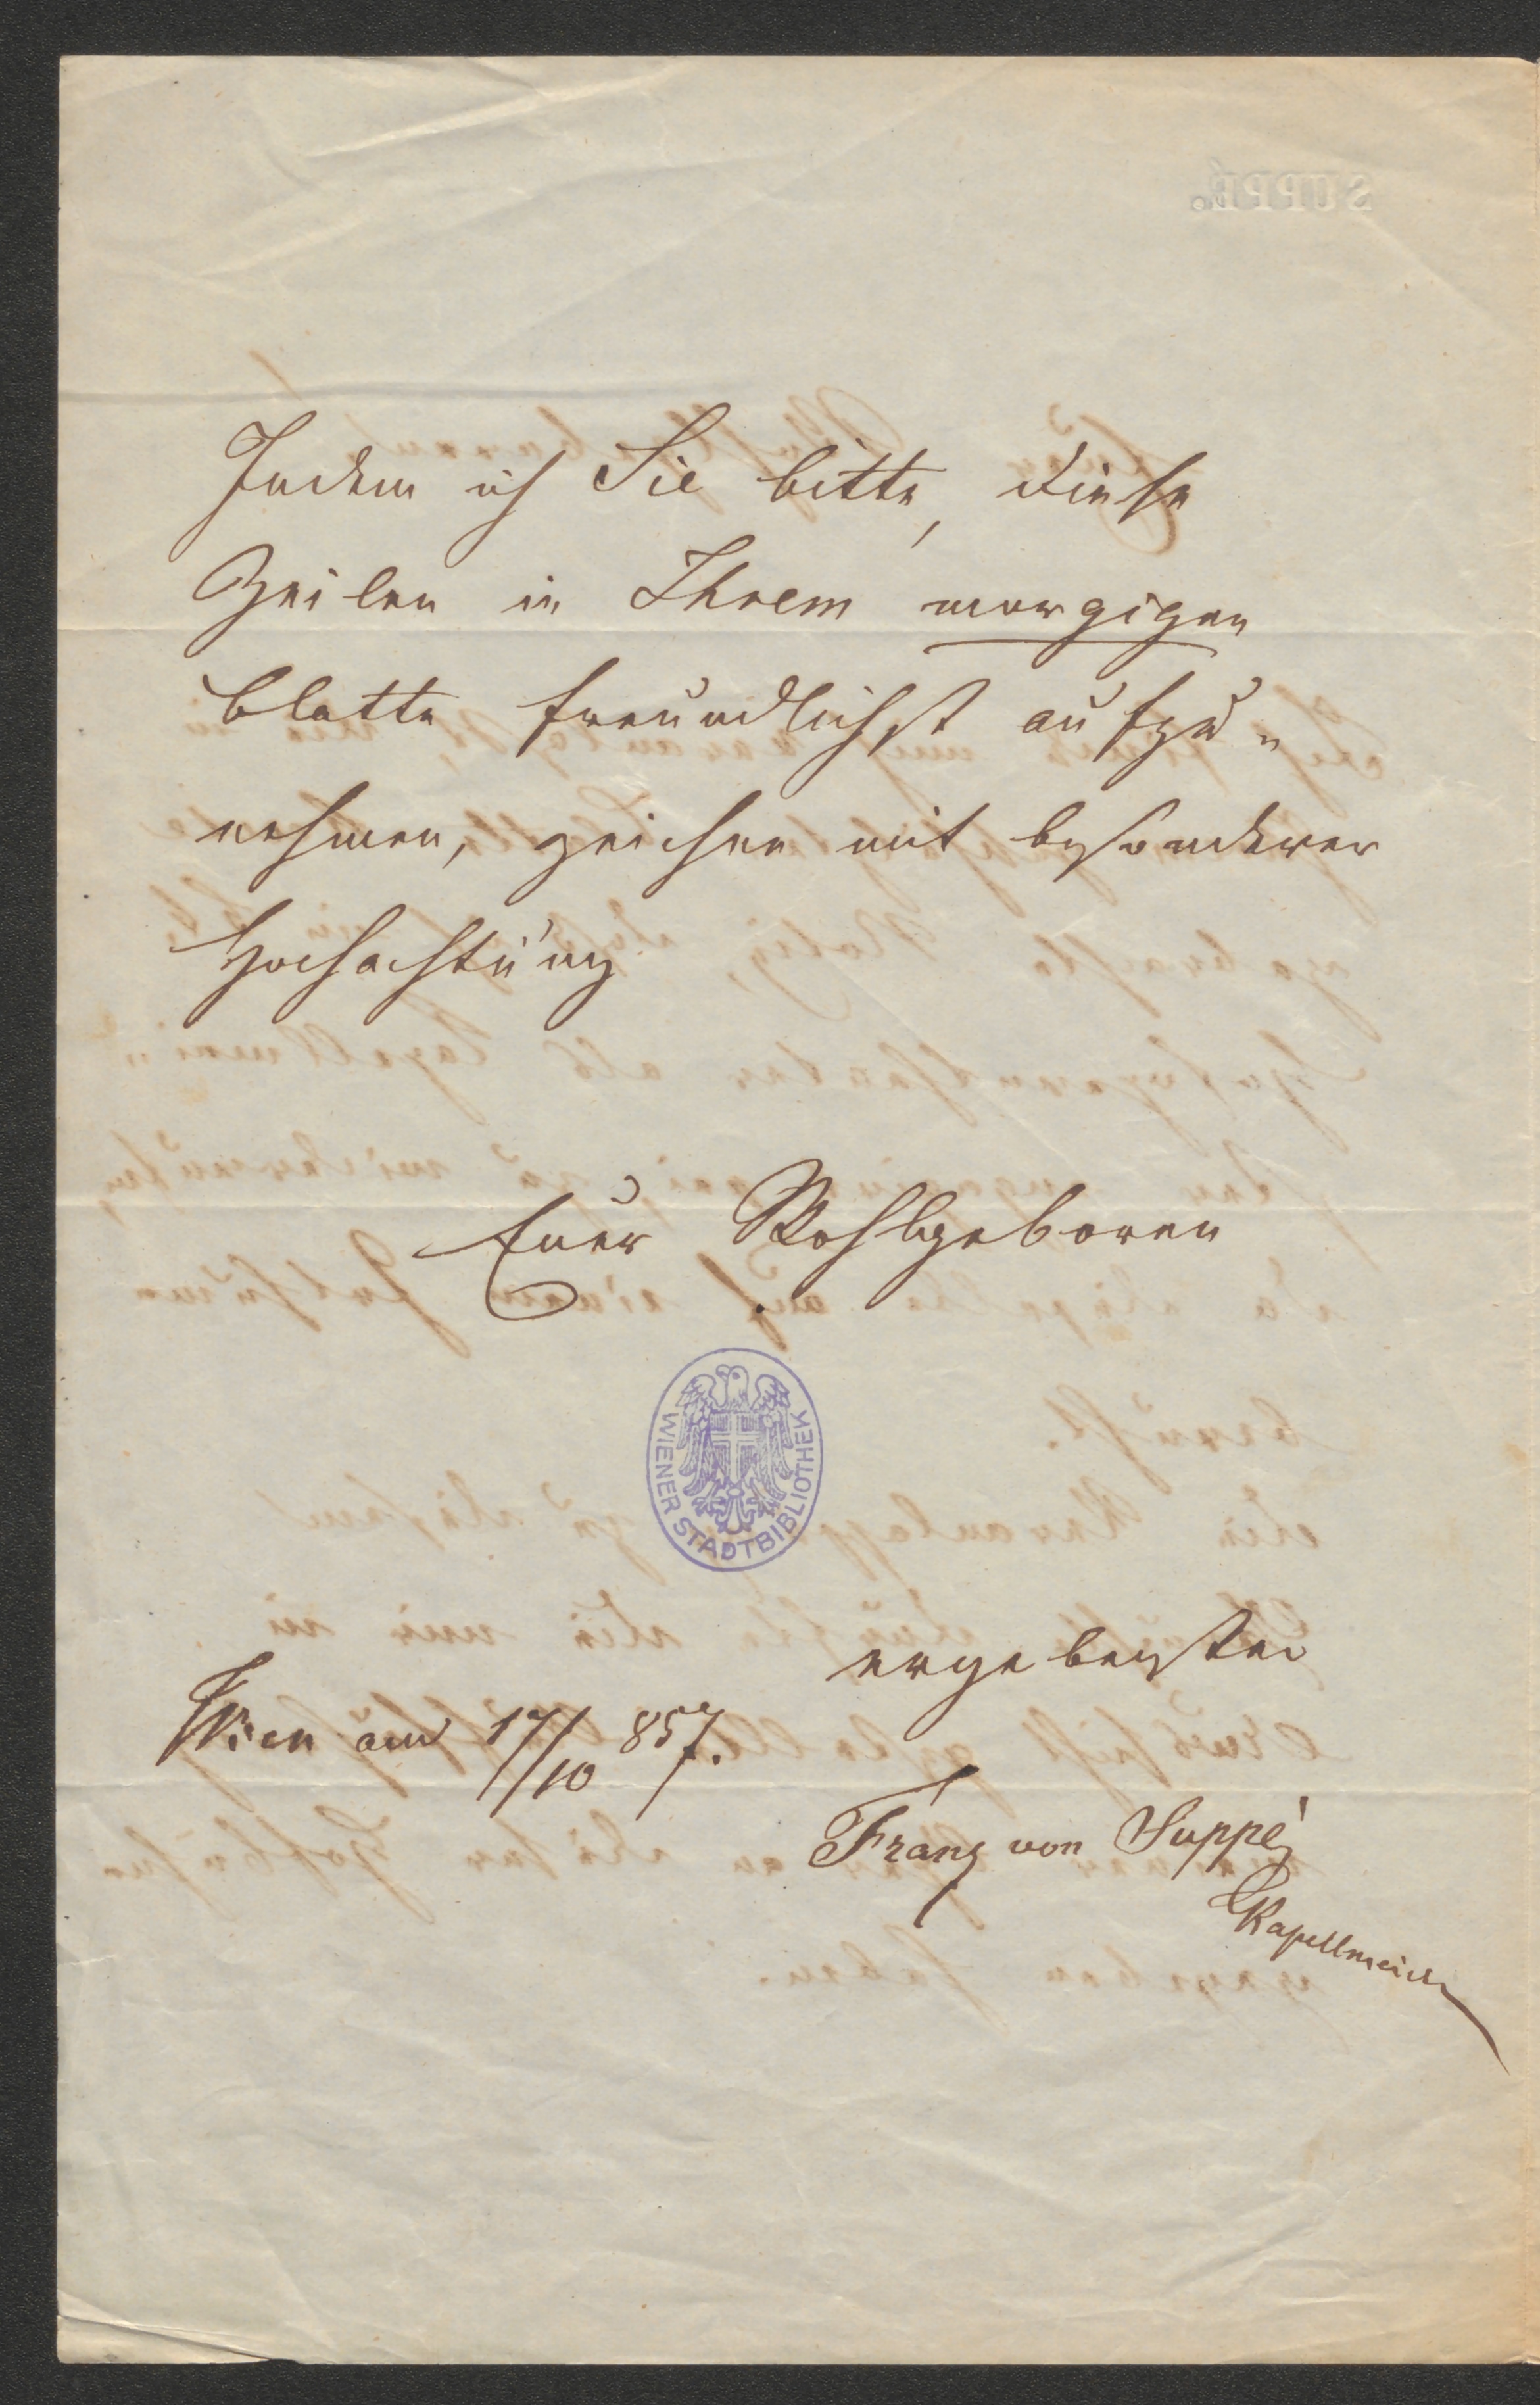 Indem ich Sie bitte, diese
Zeilen in Ihrem morgigen
Blatte freundlichst aufzu=
nehmen, zeichne mit besonderer
Hochachtung
Euer Wohlgeboren
WIENER STADTBIBLIOTHEK
ergebenster
Wien am 17/10 857.
Franz von Suppé
Kapellmeister